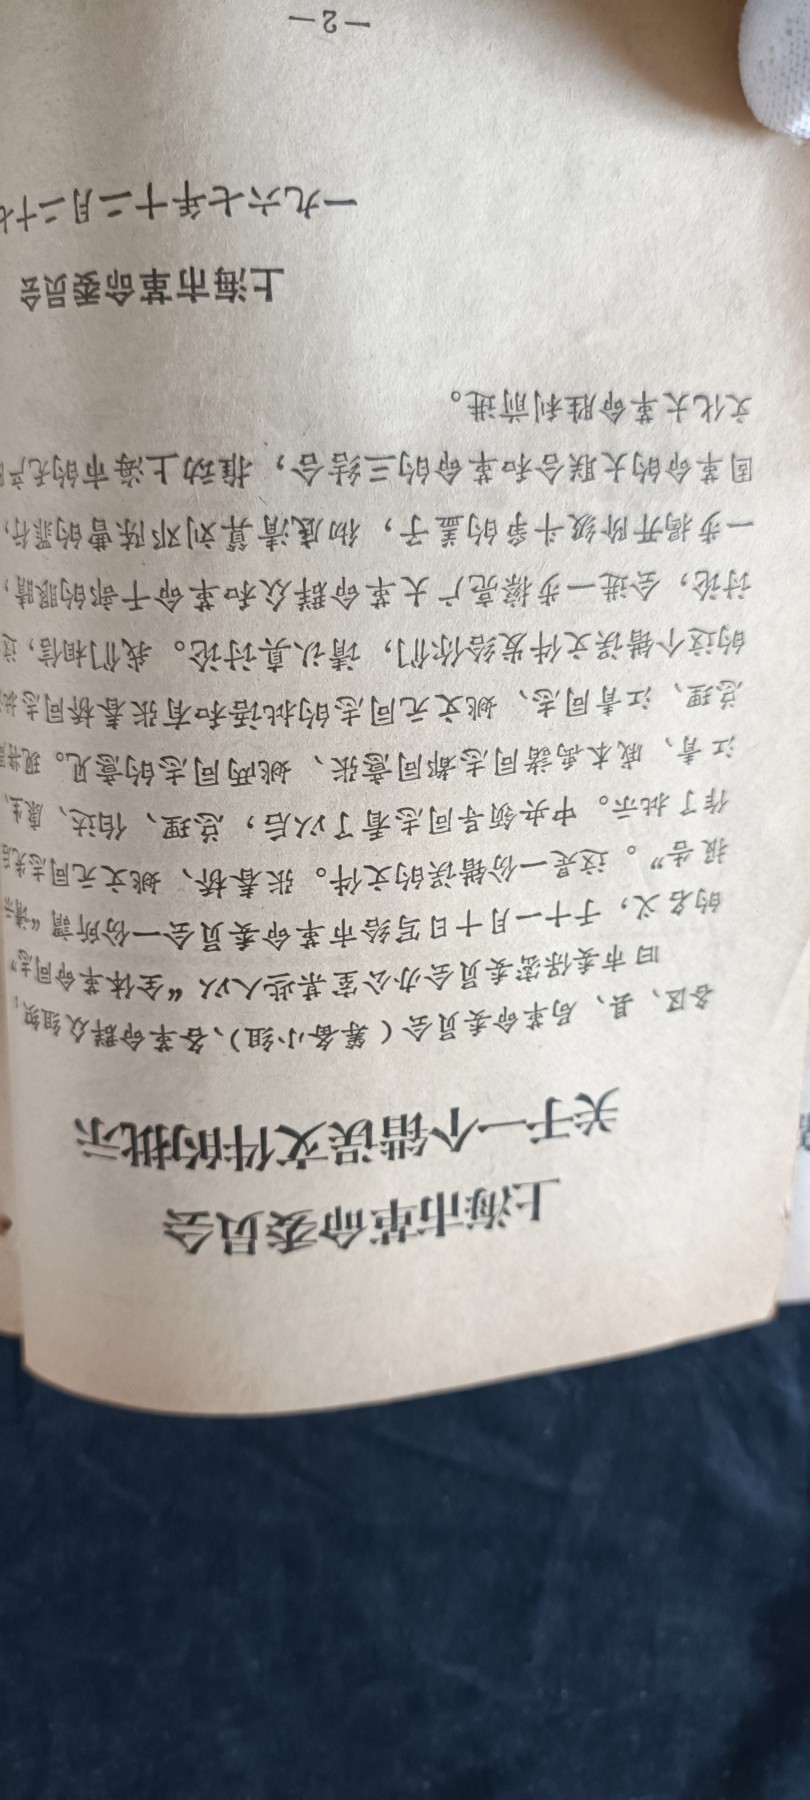 上海市革命委员会
关于一个错误文件的批示
各区、县、局革命委员会（筹备小组）、各革命群众组织：
旧市委保密委员会办公室某些人以“全体革命同志”
的名义，于十一月十日写给市革命委员会一份所謂“请示
报告”。这是一份错误的文件。张春桥、姚文元同志
作了批示。中央领导同志看了以后，总理、伯达、康生、
江青、戚本禹諸同志都同意张、姚两同志的意见。现将
总理、江青同志、姚文元同志的批语和有张春桥同志批
的这个错误文件发给你们，请认真讨论。我们相信，这
讨论，会进一步擦亮广大革命群众和革命干部的眼睛，
一步揭开阶级斗争的盖子，彻底清算刘邓陈曹的罪行，
固革命的大联合和革命的三结合，推动上海市的无产
文化大革命胜利前进。
上海市革命委员会
一九六七年十二月二十七
—2—